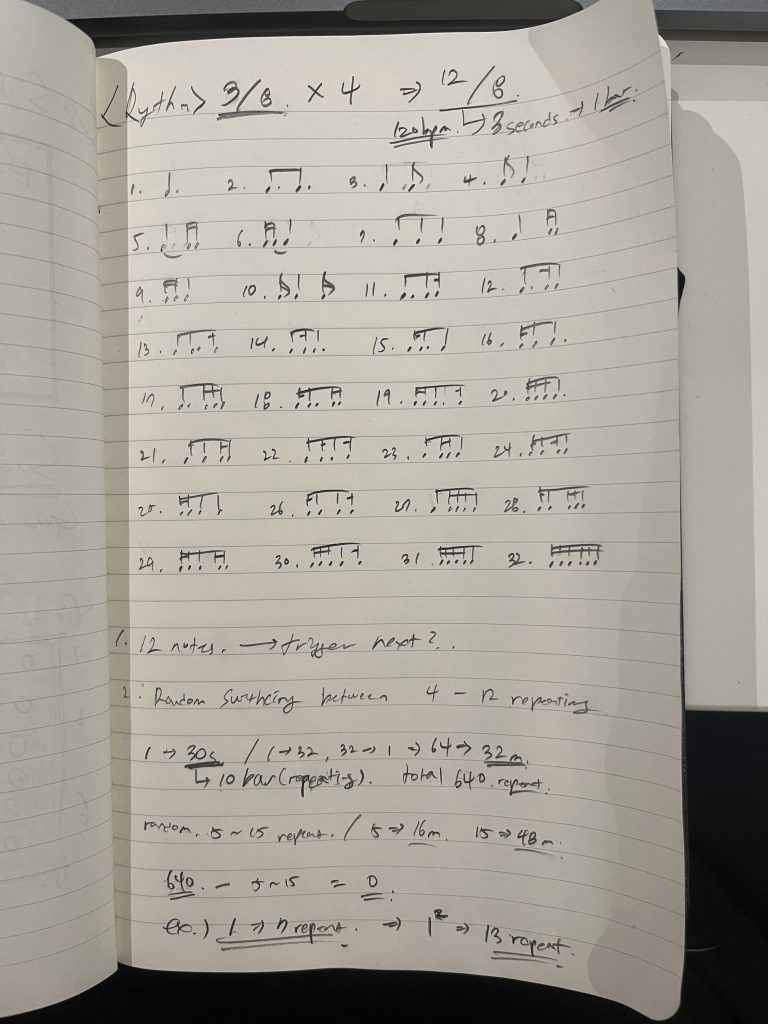 <Rythm> 3/8 × 4 ⇒ 12/8
120bpm. ↳ 3 seconds. → 1 bar.
1. 2. 3. 4.
5. 6. 7. 8.
9. 10. 11. 12.
13. 14. 15. 16.
17. 18. 19. 20.
21. 22. 23. 24.
25. 26. 27. 28.
29. 30. 31. 32.
1. 12 notes. → trigger next?..
2. Random Switching between 4 - 12 repeating
1 → 30s / 1→32, 32→1 ⇒ 64 → 32m.
↳ 10 bar (repeating). total 640. repeat.
random. 5 ~ 15 repeat. / 5 ⇒ 16m. 15 ⇒ 48m.
640. - 5~15 = 0.
ex.) 1 ⇒ 7 repeat. ⇒ 1² ⇒ 13 repeat.